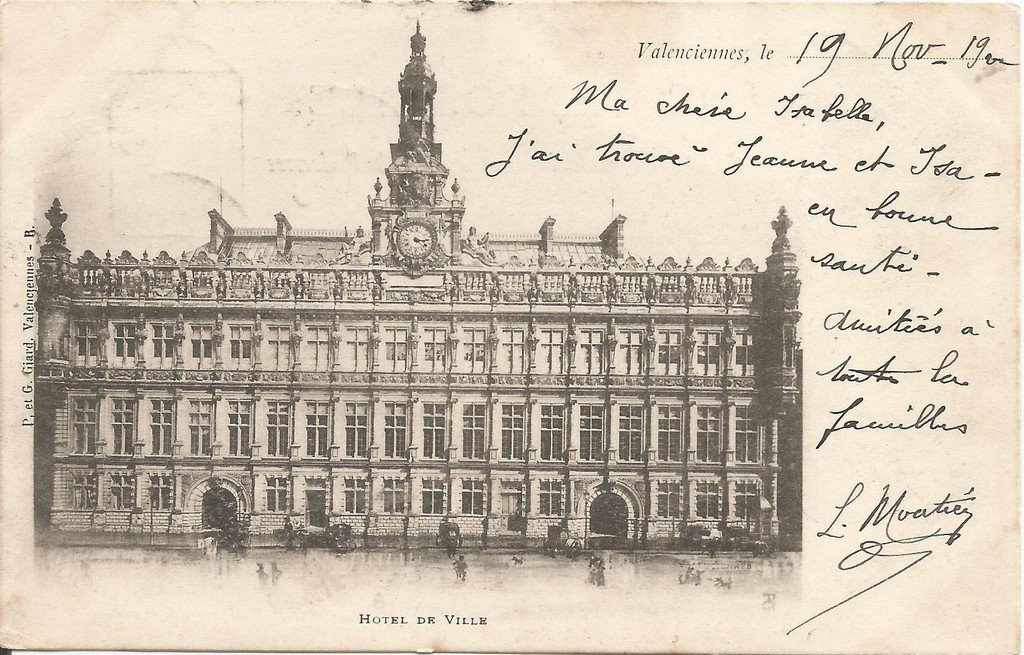 Valenciennes, le 19 Nov - 19
Ma chère Isabelle,
J'ai trouvé Jeanne et Isa-
en bonne
santé -
Amitiés à
toute la
familles
L.
P. et G. Giard, Valenciennes - B.
HOTEL DE VILLE